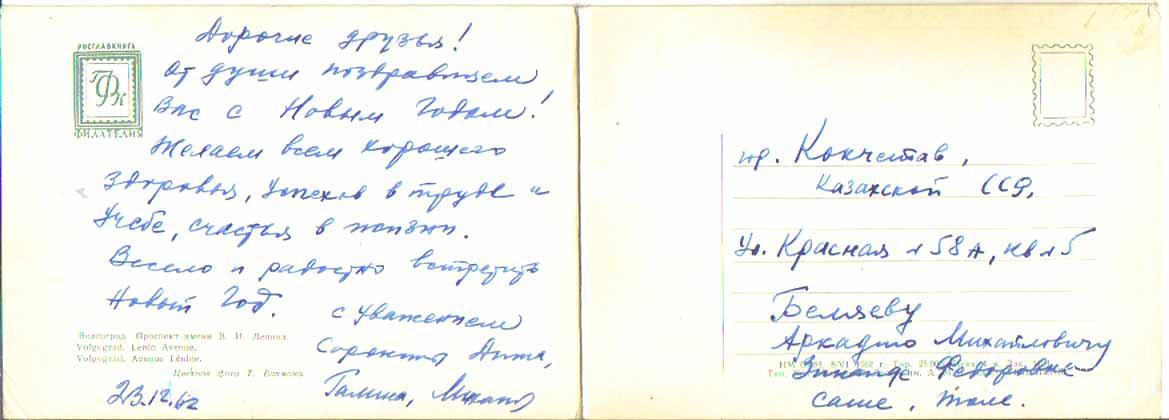 РОСГЛАВКНИГА
ФИЛАТЕЛИЯ
Дорогие друзья!
От души поздравляем
Вас с Новым Годом!
Желаем всем хорошего
здоровья, успехов в труде и
учебе, счастья в жизни.
Весело и радостно встретить
Новый Год.
с уважением
Галина,
23.12.62
Волгоград. Проспект имени В. И. Ленина.
Volgograd. Lenin Avenue.
Volgograd. Avenue Lénine.
Цветное фото Т. Бакмана
гор. Кокчетав,
Казахской ССР,
Ул. Красная 58 А, кв 5
Беляеву
Аркадию Михайловичу
Зинаиде Федоровне
Саше, Толе.